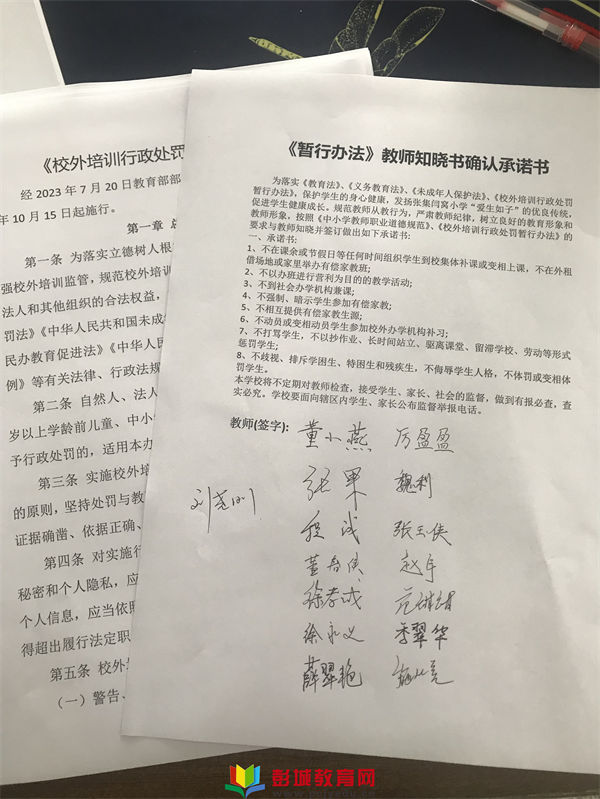 《校外培训行政处罚
经 2023 年 7 月 20 日教育部部
年 10 月 15 日起施行。
第一章 总
第一条 为落实立德树人根
强校外培训监管,规范校外培训
法人和其他组织的合法权益,
罚法》《中华人民共和国未成
民办教育促进法》《中华人民
例》等有关法律、行政法规
第二条 自然人、法人
岁以上学龄前儿童、中小
予行政处罚的,适用本办
第三条 实施校外培
的原则,坚持处罚与教
证据确凿、依据正确、
第四条 对实施行
秘密和个人隐私,应
个人信息,应当依照
得超出履行法定职
第五条 校外
(一)警告、
《暂行办法》教师知晓书确认承诺书
为落实《教育法》、《义务教育法》、《未成年人保护法》、《校外培训行政处罚
暂行办法》,保护学生的身心健康,发扬张集闫窝小学“爱生如子”的优良传统,
促进学生健康成长。规范教师从教行为,严肃教师纪律,树立良好的教育形象和
教师形象,按照《中小学教师职业道德规范》、《校外培训行政处罚暂行办法》的
要求与教师知晓并签订做出如下承诺书:
一、承诺书:
1、不在课余或节假日等任何时间组织学生到校集体补课或变相上课,不在外租
借场地或家里举办有偿家教班;
2、不以办班进行营利为目的的教学活动;
3、不到社会办学机构兼课;
4、不强制、暗示学生参加有偿家教;
5、不相互提供有偿家教生源;
6、不动员或变相动员学生参加校外办学机构补习;
7、不打骂学生,不以抄作业、长时间站立、驱离课堂、留滞学校、劳动等形式
惩罚学生;
8、不歧视、排斥学困生、特困生和残疾生,不侮辱学生人格,不体罚或变相体
罚学生。
本学校将不定期对教师检查,接受学生、家长、社会的监督,做到有报必查,查
实必究。学校要面向辖区内学生、家长公布监督举报电话。
教师(签字): 董小燕 厉盈盈
张果 魏利
程诚 张玉侠
徐孝成
徐永义 季翠华
薛翠艳
彭城教育网